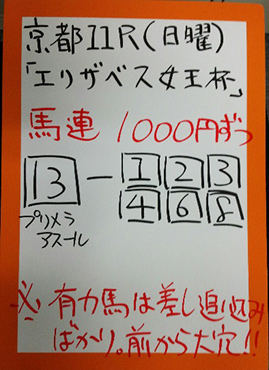 京都11R(日曜)
「エリザベス女王杯」
馬連 1000円ずつ
13 - 1 2 3
4 6 8
プリメラ
アスール
※有力馬は差し追い込み
ばかり。前から大穴!!